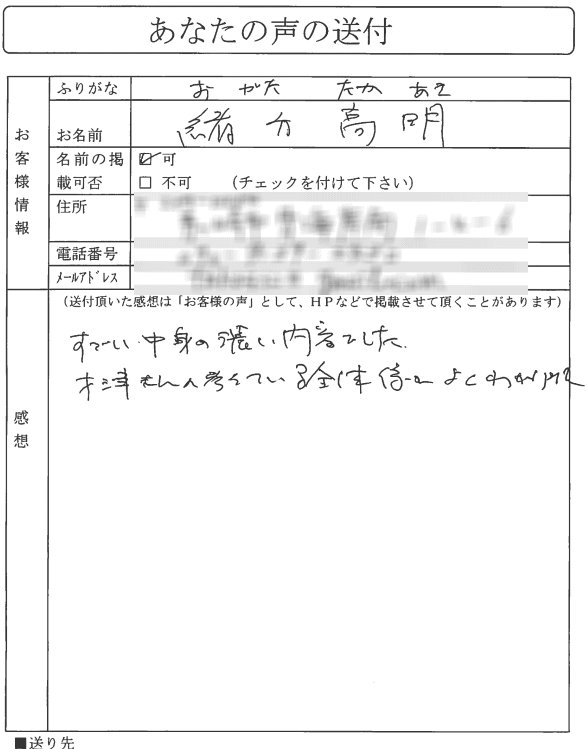 あなたの声の送付
ふりがな おがた たかあき
お客様情報
お名前 緒方 高明
名前の掲載可否 ☑ 可
□ 不可 （チェックを付けて下さい）
住所
電話番号
ﾒｰﾙｱﾄﾞﾚｽ
（送付頂いた感想は「お客様の声」として、ＨＰなどで掲載させて頂くことがあります）
感想
すごい中身の濃い内容でした。
さんの考えている全体像がよくわかりました
■送り先